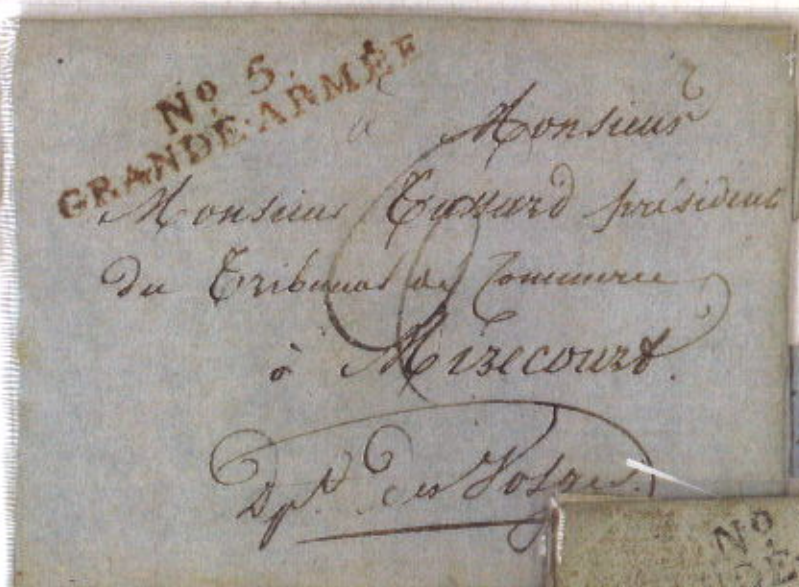 Nº 5.
GRANDE-ARMÉE
a Monsieur
Monsieur président
du Tribunal de Commerce
à Mirecourt.
Dpt. des Vosges.
Nº